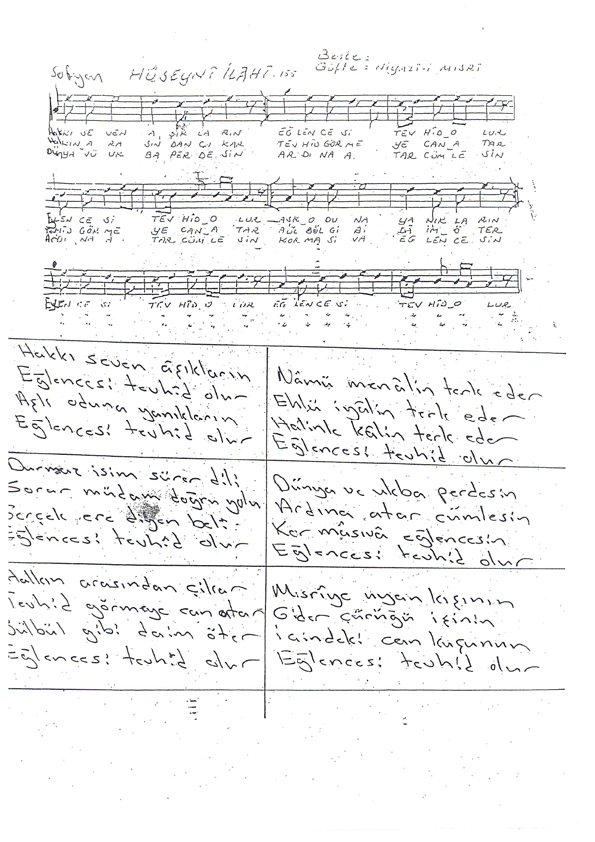 Beste :
Sofyan HÜSEYNİ İLÂHİ. 155 Güfte : NİYAZİ-İ MISRİ
HAKKI SE VEN A ŞIK LA RIN EĞ LEN CE Sİ TEV HİD_O LUR
HALKIN A RA SIN DAN ÇI KAR TEVHİD GÖR ME YE CAN_A TAR
DÜNYA VÜ UK BA PER DE SİN AR DI NA A. TAR CÜM LE SİN
EĞLEN CE Sİ TEV HİD_O LUR AŞK_O DU NA YA NIK LA RIN
TEVHİD GÖR ME YE CAN_A TAR BÜL BÜL Gİ Bİ DA İM_Ö TER
ARDI NA A. TAR CÜM LE SİN KOR MA Sİ VA EĞ LEN CE SİN
EĞLEN CE Sİ TEV HİD_O LUR EĞ LEN CE Sİ TEV HİD_O LUR
Hakkı seven âşıkların
Eğlencesi tevhîd olur
Aşk oduna yanıkların
Eğlencesi tevhîd olur
Nâmü menâlin terk eder
Ehlü iyâlin terk eder
Hâlinle kâlin terk eder
Eğlencesi tevhîd olur
Durmaz isim sürer dili
Sorar müdam doğru yolu
Gerçek ere diyen belî
Eğlencesi tevhîd olur
Dünya ve ukba perdesin
Ardına atar cümlesin
Kor mâsivâ eğlencesin
Eğlencesi tevhîd olur
Halkın arasından çıkar
Tevhîd görmeye can atar
Bülbül gibi daim öter
Eğlencesi tevhîd olur
Mısrîye uyan kişinin
Gider çürüğü işinin
İçindeki can kuşunun
Eğlencesi tevhîd olur